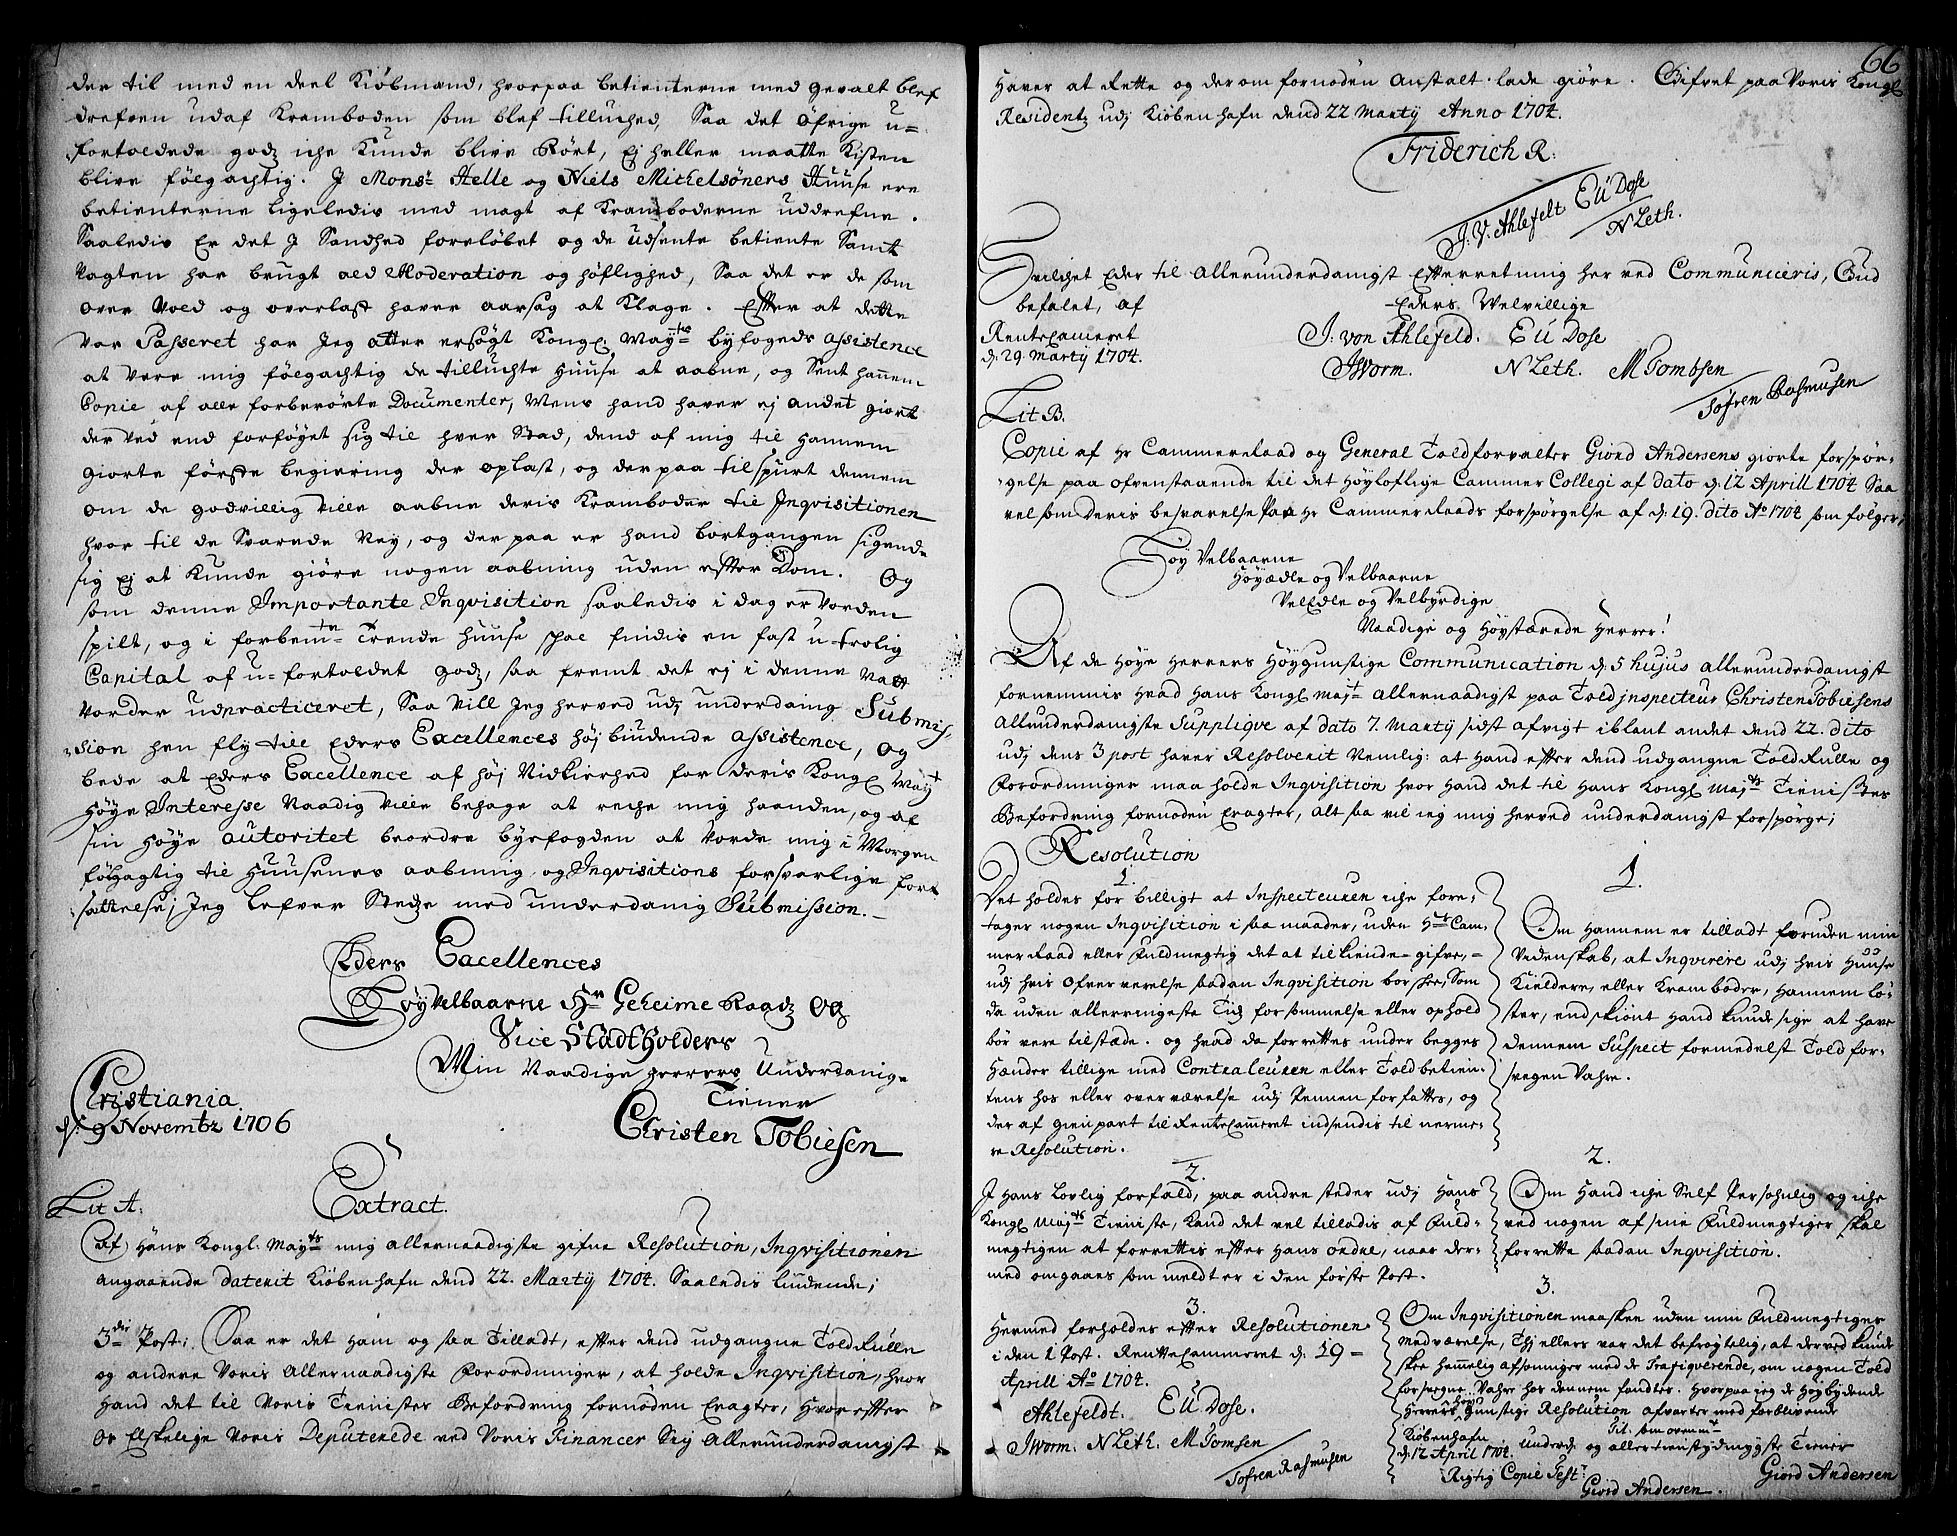 der til med en deel Kiöbmænd, hvorpaa betienterne med gevalt blef
drefven udaf Kramboden som blef tilluched, Saa det Öfrige u-
fortoldede godz iche Kunde blive Rört, Ej heller maatte Kisten
blive fölgachtig. J Monsr Helle og Niels Michelsöners Huuse ere
betienterne ligeledis med magt af Kramboderne uddrefne.
Saaledis Er det J Sandhed forelöbet og de Udsente betiente Samt
Vagten har brugt all Moderation og höflighed, Saa det er de som
over Vold og overlast haver aarsag at Klage. Efter at dette
var Passeret har Jeg atter ersögt Kongl. Mayts byfogeds assistence
at være mig fölgachtig de tilluchte Huuse at aabne, og Sent hannem
Copie af alle forberörte Documenter, Mens hand haver ej andet giort
der ved end forföyet sig til hver Stad, dend af mig til Hannem
giorte förste begiering der oplæst, og der paa tilspurt dennem
om de godvillig ville aabne deris Kramboder til Inqvisitionen
hvor til de Svarede Ney, og der paa er hand bortgangen sigend-
sig Ej at Kunde giöre nogen aabning uden efter Dom. Og
som denne Importante Inqvisition saaledis i dag er vorden
spilt, og i forbemte Trende Huuse skal findis en fast u-trolig
Capital af u-fortoldet godz, saa fremt det ej i denne Natt
vorder udpracticeret, Saa vill Jeg herved udj underdanig Submis-
sion hen fly till Eders Excellences höj biudende assistence, og
bede at Eders Excellence af höj Nidkierhed for deris Kongl Mayt
Höye Interesse Naadig ville behage at reche mig haanden, og af
sin Höye autoritet beordre byefogden at vorde mig i Morgen
fölgagtig til Huusenes aabning og Inqvisitions forsvarlige fort
sættelse; Jeg lefver Stedze med underdanig Submission.
Eders Excellences
HöyVelbaarne Hr Geheime Raadz og
Vice Stadtholders
Min Naadige herrers Underdanige
Tiener
Christiania
d: 9 Novembr 1706
Christen Tobiesen
Lit A: Extract.
Af Hans Kongl: Mayts mig allernaadigste gifne Resolution, Inqvisitionen
angaaende daterit Kiöbenhafn dend 22. Martij 1704. Saaledis liudende;
3die Post: Saa er det ham og saa Tilladt, efter dend udgangne ToldRulle
og andere Voris Allernaadigste Forordninger, at holde Inqvisition, hvor
Hand det til Voris Tienister Befordring fornöden Eragter, Hvorefter
Os Elskelige Voris Deputerede ved Voris Financer Sig Allerunderdanigst
66
Haver at Rette og derom fornöden Anstalt lade giöre. Gifvet paa Voris Kongl
Residentz udj Kiöbenhafn dend 22 Martij Anno 1704.
Friderich R:
J. V. Ahlefelt EU Dose
N Leth.
Hvilchet Eder til Allerunderdanigst Efterretning her ved Communiceris, Gud
befalet, af Eders Velvillige
RenteCameret
d: 29. Martij 1704.
J. von Ahlefeld. EU Dose
JWorm. N Leth. M Tombsen
Sofren Rasmusen
Lit B.
Copie af Hr CammerRaad og General Toldforvalter Giord Andersens giorte forspör-
gelse paa ofvenstaaende til det Höyloflige Cammer Collegi af dato d: 12 Aprill 1704 Saa
vel som deris besvarelse Paa Hr CammerRaads forspörgelse af d: 19. dito Ao 1704 som fölger,
Höy Velbaarne
Höyædle og Velbaarne
VelEdle og Velbyrdige
Naadige og Höystærede Herrer!
Af de Höye Herrers Höygunstige Communication d: 5 hujus allerunderdanigst
fornemmis Hvad Hans Kongl Majt allernaadigst paa Toldjnspecteur Christen Tobiesens
Allunderdanigste Suppliqve af dato 7. Martij sidst afvigt iblant andet dend 22. dito
udj dens 3 post haver Resolverit Nemlig: at Hand efter dend udgangne ToldRulle og
Forordninger maa holde Inqvisition hvor Hand det til Hans Kongl Majts Tienistes
Befordring fornöden Eragter, Alt saa vil ieg mig herved underdanigst forspörge;
Resolution
1.
Det holdes for billigt at Inspecteuren iche fore-
tager nogen Inqvisition i saa maader, uden Hrr Cam-
mer Raad eller Fuldmegtig det at tilkiende-gifve,
udj hvis Ofververelse saadan Inqvisition bör skee, Som
da uden allerringeste Tids forsömmelse eller ophold
bör vere tilstæde. og hvad da forrettes under begges
Hænder tillige med Contraleuren eller Toldbetien-
tens hos eller overværelse udj Pennen forfattes, og
der af Gienpart til RenteCammeret indsendis til nerme-
re Resolution.
1.
Om Hannem er tilladt foruden min
Videnskab, at Inqvirere udj hvis Huuse
Kieldere, eller Kramboder, Hannem ly-
ster, endskiönt Hand kunde sige at have
dennem Suspect formedelst Told for-
svegen Vahre.
2.
J Hans lovlig forfald, paa andre steder udj Hans
Kongl Majts Tieniste, Kand det vel tilladis af Fuld-
megtigen at forrettis efter Hans ordre, naar der-
med omgaaes som meldt er i den förste Post.
2.
Om Hand iche Self Persohnlig og iche
ved nogen af sine Fuldmegtiger skal
forrette saadan Inqvisition.
3.
Hermed forholdes efter Resolutionen
i den 1 Post. RentteCammeret d: 19
Aprill Ao 1704.
Ahlefeldt. EU Dose.
JWorm. N Leth. M Tomsen
Sofren Rasmusen
3.
Om Inqvisitionen maa skee uden min Fuldmegtiges
Nedværelse, Thj ellers var det befröytelig, at derved kunde
skee hemmelig afsoninger med de Trafiqverende, om nogen Told
forsvegne Vahre hos dennem fandtes. Hvorpaa jeg de Höybydende
Herrers Höygunstige Resolution afvarter med forblivende
Kiöbenhafn Tit: som ovenmt
d: 12 April 1704. Underd: og allertienstydmygste Tiener
Rigtig Copie Test: Giord Andersen
Giord Andersen.